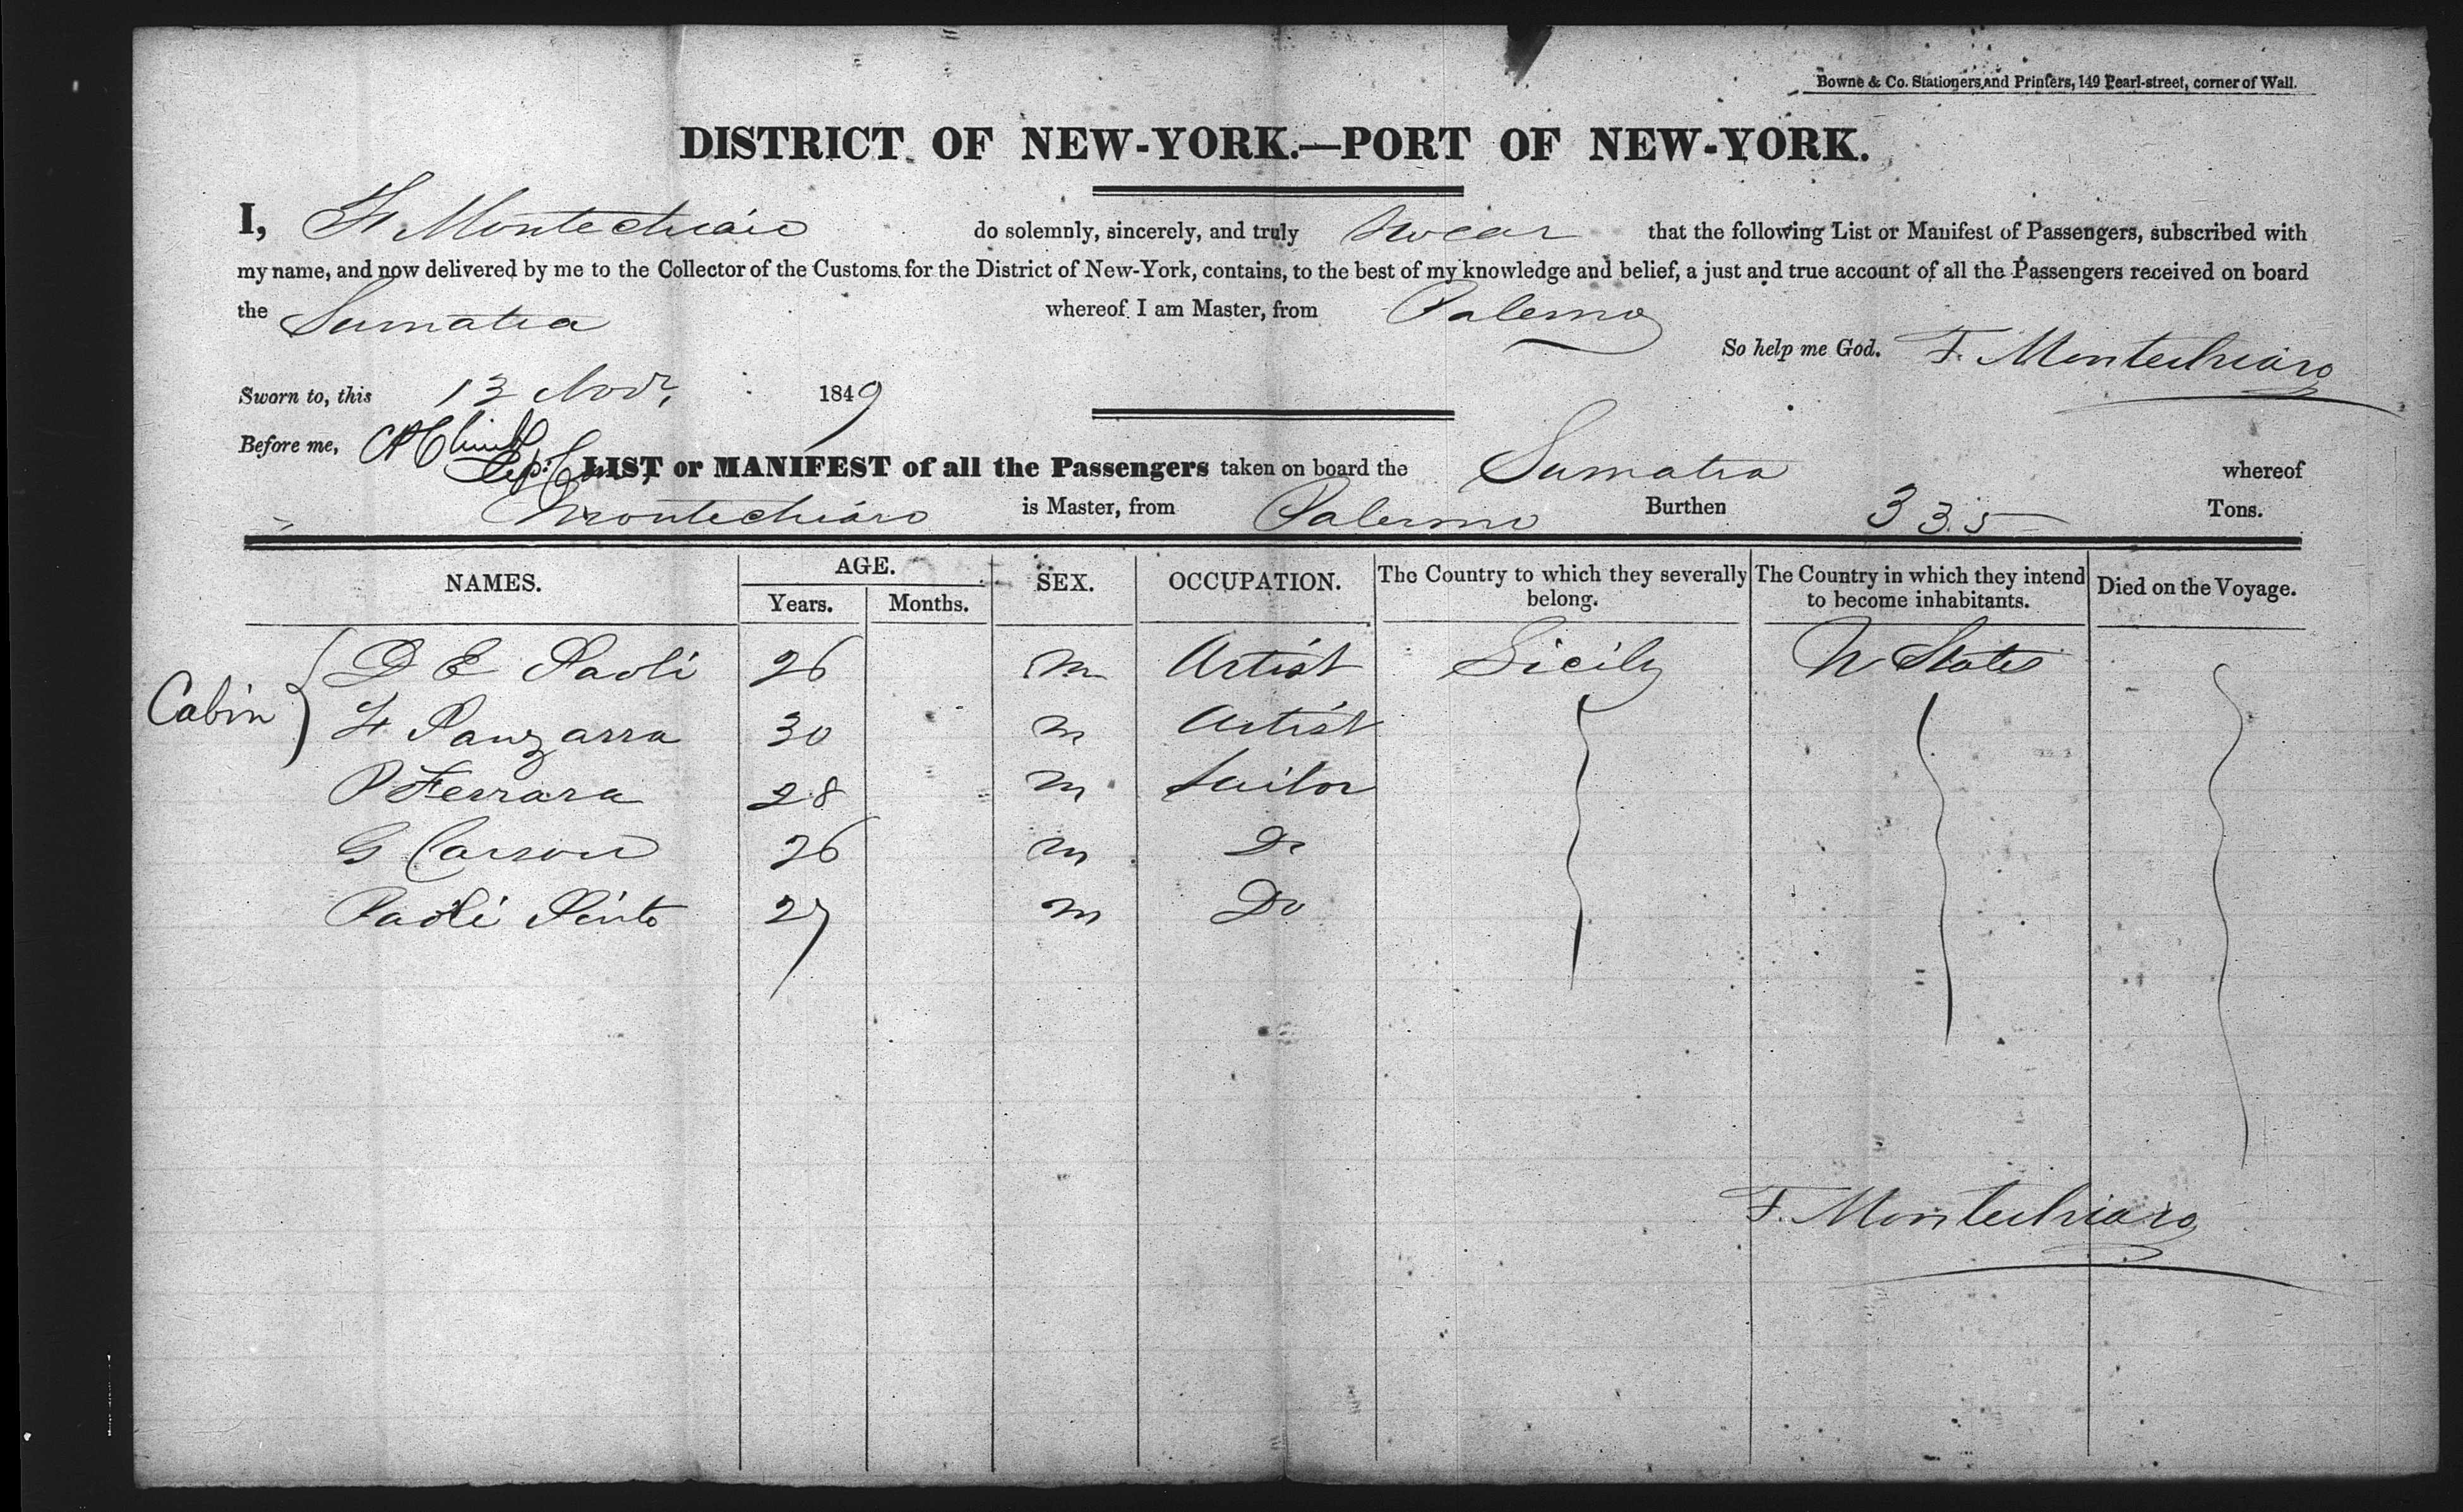 Bowne & Co. Stationers and Printers, 149 Pearl-street, corner of Wall.
DISTRICT OF NEW-YORK.—PORT OF NEW-YORK.
I, F Montechiaro do solemnly, sincerely, and truly swear that the following List or Manifest of Passengers, subscribed with
my name, and now delivered by me to the Collector of the Customs for the District of New-York, contains, to the best of my knowledge and belief, a just and true account of all the Passengers received on board
the Sumatra whereof I am Master, from Palermo
So help me God. F. Montechiaro
Sworn to, this 13 Novr, 1849
Before me,
Dep. Col
LIST or MANIFEST of all the Passengers taken on board the Sumatra whereof
Montechiaro is Master, from Palermo Burthen 335 Tons.
NAMES. AGE. SEX. OCCUPATION. The Country to which they severally belong. The Country in which they intend to become inhabitants. Died on the Voyage.
Years. Months.
Cabin
D E Paoli 26 m Artist Sicily U States
F Panzarra 30 m Artist
P Ferrara 28 m Sailor
G Carson 26 m Do
Paoli Pinto 27 m Do
F. Montechiaro